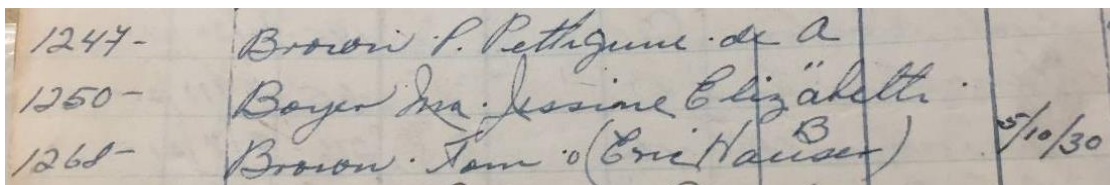 1247- Brown P. Pettigune de A
1250- Boyer Ma. Jessime Elizabeth.
1268- Brown. Tom o (Eric Hauser) B 5/10/30